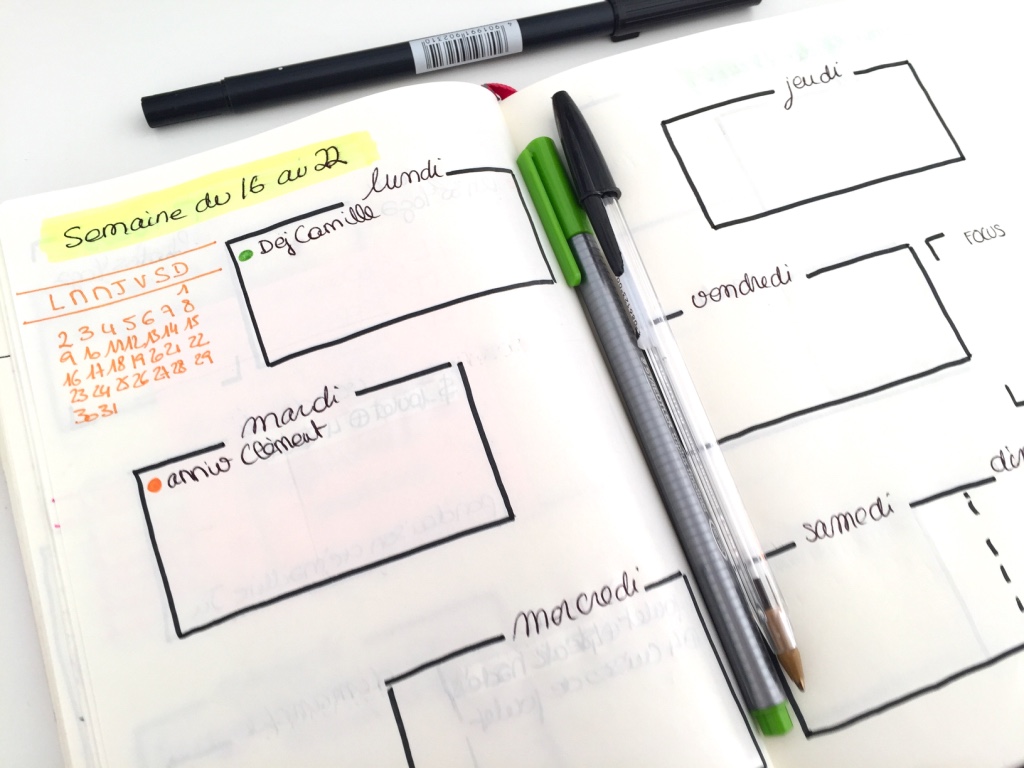 Semaine du 16 au 22
L M M J V S D
1
2 3 4 5 6 7 8
9 10 11 12 13 14 15
16 17 18 19 20 21 22
23 24 25 26 27 28 29
30 31
lundi
Dej Camille
mardi
anniv Clément
mercredi
jeudi
vendredi
FOCUS
samedi
dim
4901991902310